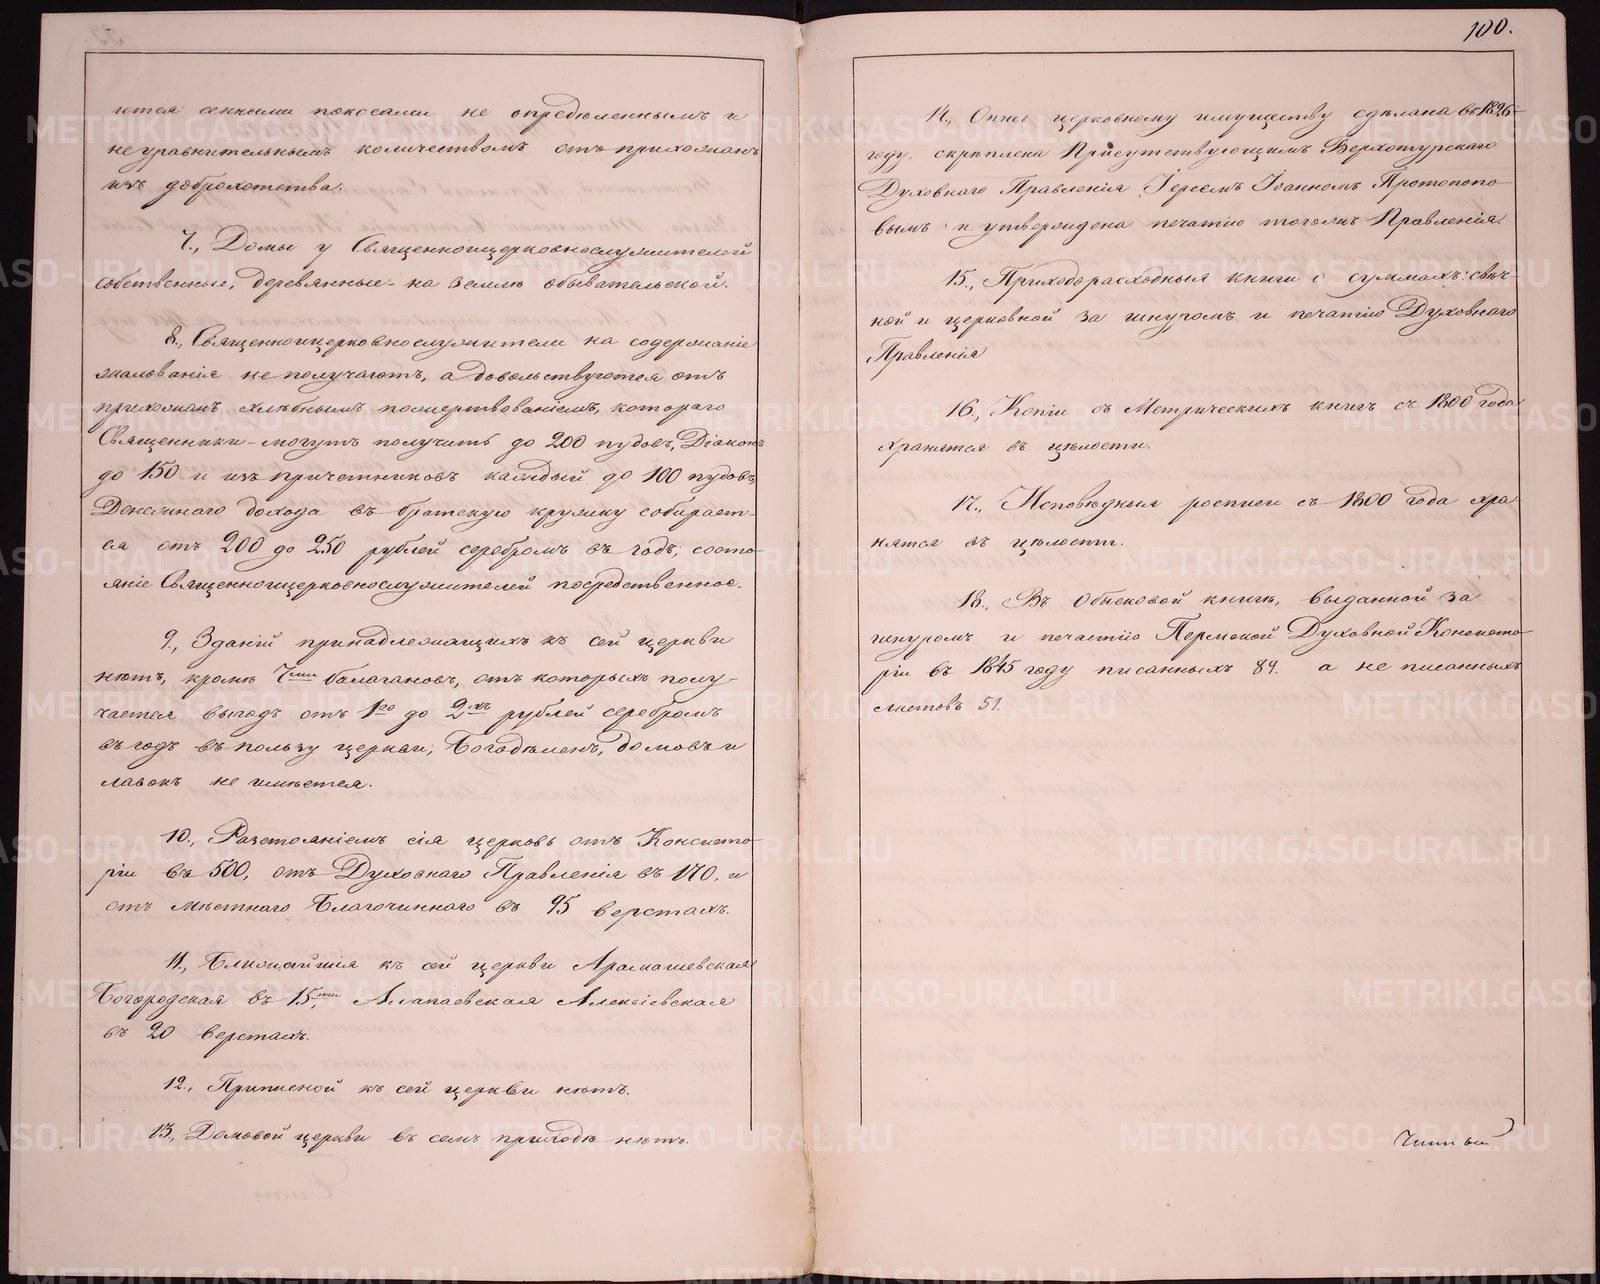 ются сенными покосами не опредѣленнымъ и
неуравнительнымъ количествомъ отъ прихожанъ
изъ доброхотства.
7., Домы у Священноицерковнослужителей
собственные, деревянные на землѣ обывательской.
8., Священноицерковнослужители на содержаніе
жалованія не получаютъ, а довольствуются отъ
прихожанъ хлѣбнымъ пожертвованіемъ, котораго
Священники могутъ получить до 200 пудовъ, Діаконъ
до 150 и изъ причетниковъ каждый до 100 пудовъ,
Денежнаго дохода въ братскую кружку собирает-
ся отъ 200 до 250 рублей серебромъ въ годъ; состо-
яніе Священноицерковнослужителей посредственное.
9., Зданій принадлежащихъ къ сей церкви
нѣтъ, кромѣ 7ми балагановъ, отъ которыхъ полу-
чается выгодъ отъ 1го до 2хъ рублей серебромъ
въ годъ въ пользу церкви, Богадѣленъ, домовъ и
лавокъ не имѣется.
10., Разстояніемъ сія церковь отъ Консисто-
ріи въ 500, отъ Духовнаго Правленія въ 170, и
отъ мѣстнаго Благочиннаго въ 95 верстахъ.
11., Ближайшія къ сей церкви Арамашевская
Богородская въ 15ти, Алапаевская Алексіевская
въ 20 верстахъ.
12., Приписной къ сей церкви нѣтъ.
13., Домовой церкви въ семъ приходѣ нѣтъ.
100.
14., Опись церковному имуществу сдѣлана въ 1826
году, скрѣплена Присутствующимъ Верхотурскаго
Духовнаго Правленія Іереемъ Іоанномъ Протопопо-
вымъ и утверждена печатію тогожъ Правленія.
15., Приходорасходныя книги о суммахъ: свѣч-
ной и церковной за шнуромъ и печатію Духовнаго
Правленія
16., Копіи съ Метрическихъ книгъ съ 1800 года
хранятся въ цѣлости.
17., Исповѣдныя росписи съ 1800 года хра
нятся въ цѣлости.
18., Въ Обысковой книгѣ, выданной за
шнуромъ и печатію Пермской Духовной Консисто-
ріи въ 1845 году писанныхъ 89. а не писанныхъ
листовъ 51.
METRIKI.GASO-URAL.RU